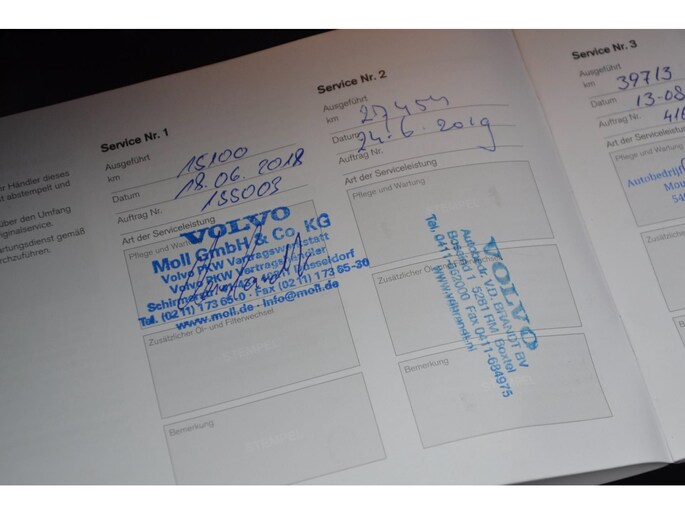 e Händler dieses
st abstempelt und
über den Umfang
riginalservice.
artungsdienst gemäß
rchzuführen.
Service Nr. 1
Ausgeführt
km 15100
Datum 18.06.2018
Auftrag Nr. 135003
Art der Serviceleistung
Pflege und Wartung
VOLVO
Moll GmbH & Co. KG
Volvo PKW Vertragswerkstatt
Volvo PKW Vertragshändler
Düsseldorf
Tel. (02 11) 1 73 65-0 · Fax (02 11) 1 73 65-30
www.moll.de · info@moll.de
Zusätzlicher Öl- und Filterwechsel
Bemerkung
Service Nr. 2
Ausgeführt
km 27454
Datum 24.6.2019
Auftrag Nr.
Art der Serviceleistung
Pflege und Wartung
VOLVO
Autobedr. V.D. BRANDT BV
Bosscheweg 1 5281 RM Boxtel
Tel. 0411-
Fax 0411-684975
Zusätzlicher Öl-
Bemerkung
Service Nr. 3
Ausgeführt
km 39713
Datum 13-08
Auftrag Nr. 416
Art der Serviceleistung
Pflege und Wartung
Autobedrijf
Zusätzlicher Öl
Bemerkung